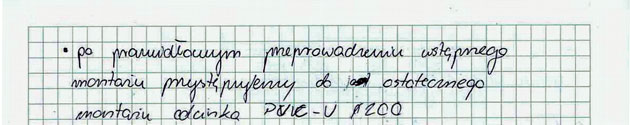 • po prawidłowym przeprowadzeniu wstępnego
montażu przystępujemy do ostatecznego
montażu odcinka PVC-U ø200